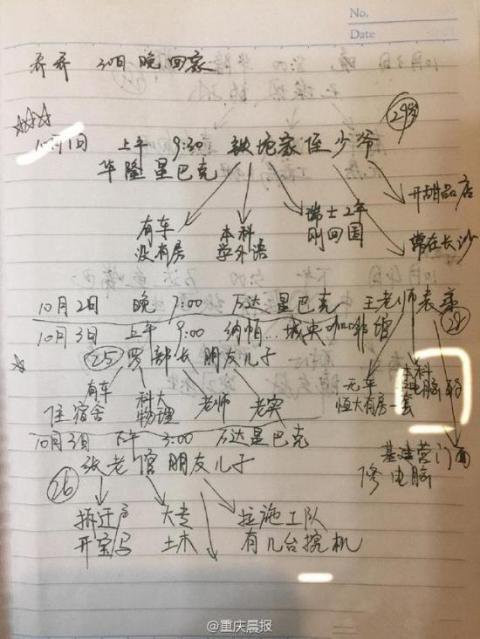 No.
Date
乔乔 30日 晚 回家
10月1日 上午 9:30 铁坨家侄少爷 29岁
华隆星巴克
有车
没有房
本科
学外语
瑞士2年
刚回国
开甜品店
常在长沙
10月2日 晚 7:00 万达星巴克 王老师表弟 28
10月3日 上午 9:00 纳帕...城央咖啡馆
25 罗部长 朋友儿子
有车
住宿舍
科大
物理
老师
老实
无车
恒大有房一套
本科
电脑
门面
修电脑
10月3日 下午 3:00 万达星巴克
26 张老官朋友儿子
拆迁户
开宝马
大专
土木
拉施工队
有几台挖机
@重庆晨报